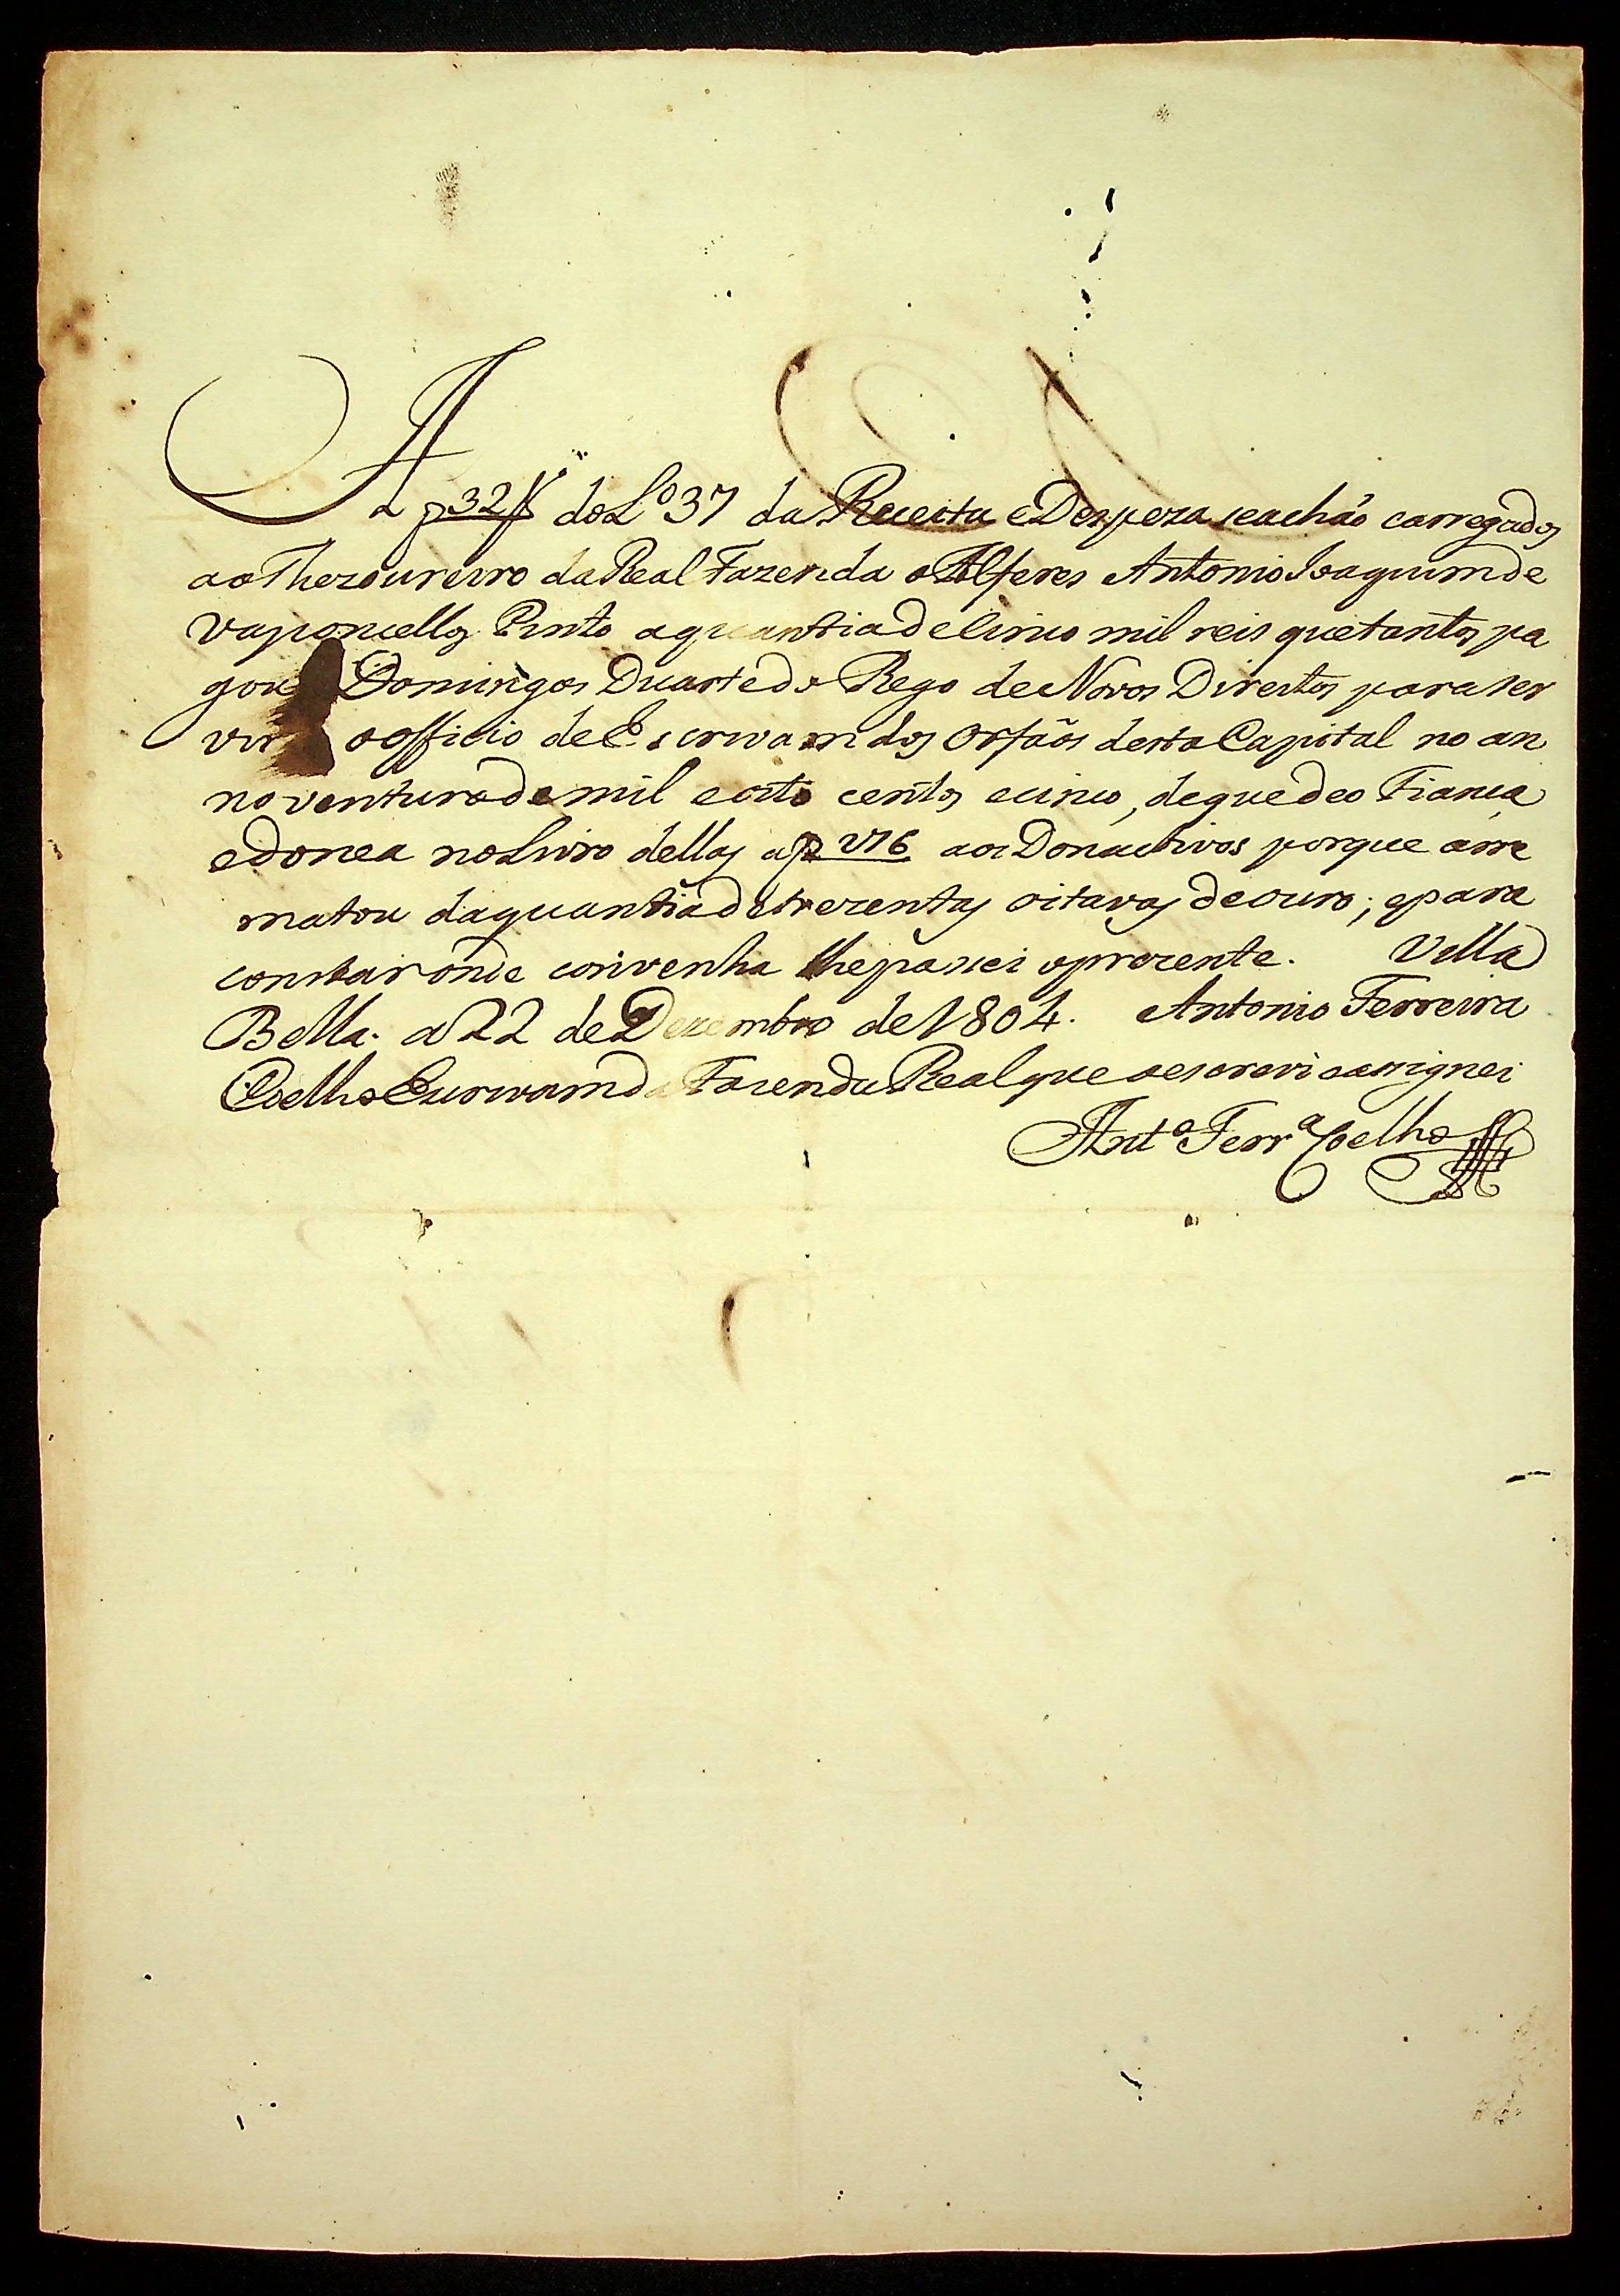 A f 32 V do L.º 37 da Receita e Despeza se achão carregados
ao Thezoureiro da Real Fazenda o Alferes Antonio Joaquim de
Vasconcellos Pinto a quantia de cinco mil reis que tantos pa
gou Domingos Duarte do Rego de Novos Direitos para ser
vir o officio de Escrivam dos Orfãos desta Capital no an
no venturo de mil e oito centos e cinco, de que deo Fiança
edonea no Livro dellas a f V16 aos Donactivos porque arre
matou da quantia de trezentas oitavas de ouro; e para
constar onde convenha lhe passei o prezente. Villa
Bella. a 22 de Dezembro de 1804. Antonio Ferreira
Coelho Escrivam da Fazenda Real que o escrevi e assignei
Ant.º Ferr.ª Coelho